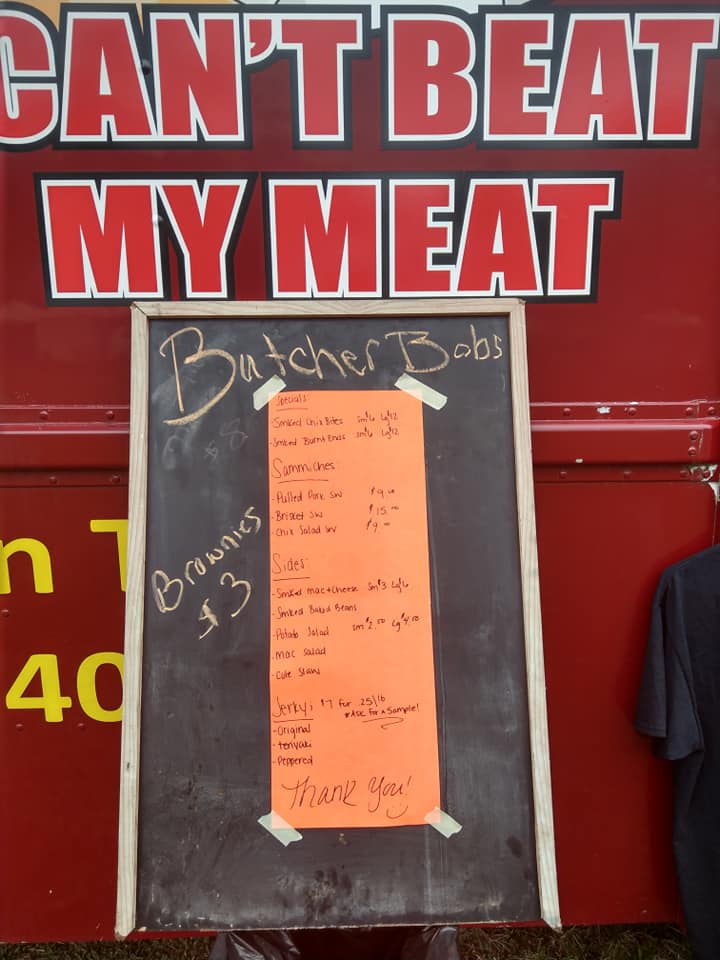 CAN'T BEAT
MY MEAT
Butcher Bobs
Specials:
-Smked Chix Bites sm $6 Lg $12
-Smked Burnt Ends sm $6 Lg $12
Sammiches:
-Pulled Pork SW $9.00
-Brisket SW $15.00
-Chix Salad SW $9.00
Sides:
-Smked mac+Cheese Sm $3 Lg $6
-Smked Baked Beans
-Potato Salad sm $2.50 Lg $4.50
-Mac Salad
-Cole Slaw
Jerky; $7 for .25/lb
*ASK for a Sample!
-Original
-teriyaki
-Peppered
Thank You!
Brownies
$3
$8
n T
40